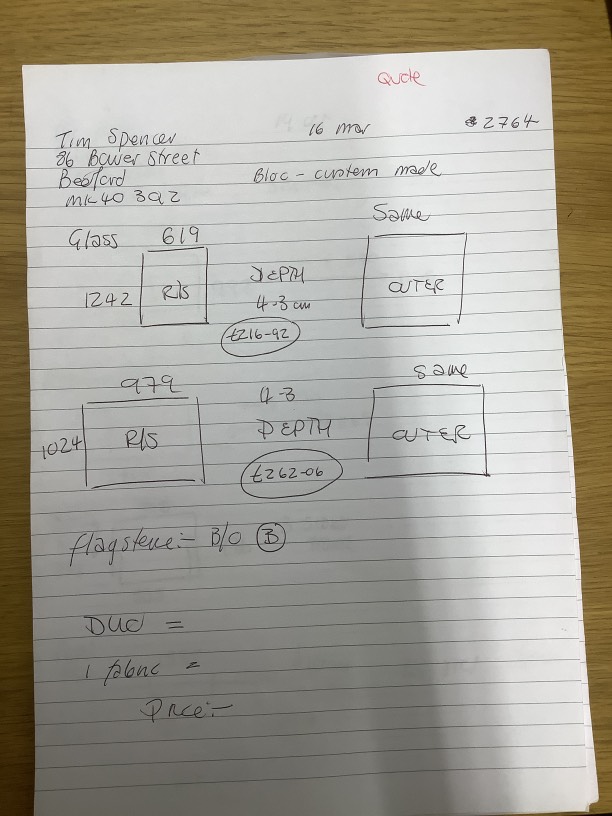 Quote
Tim Spencer 16 mar 2764
86 Bower Street
Bedford Bloc - custom made
MK40 3QZ
Same
Glass 619
1242 R/S DEPTH OUTER
4-3 cm
£216-92
979 4-3 Same
1024 R/S DEPTH OUTER
£262-06
flagstene:- B/O B
Duo =
1 fabric =
Price:-